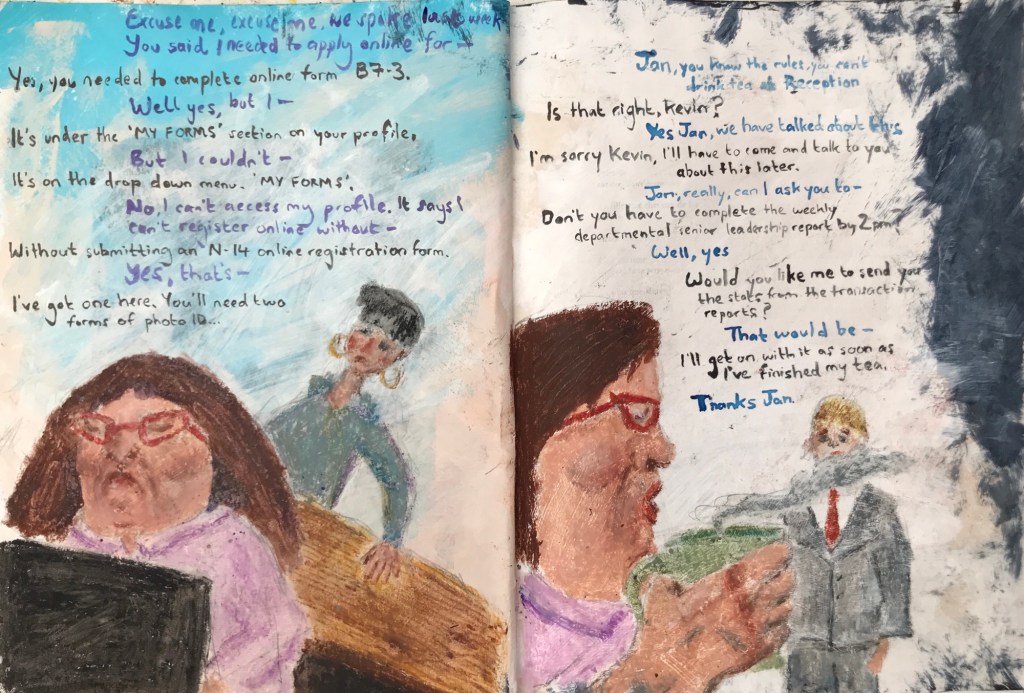 Excuse me, excuse me, we spoke last week
You said I needed to apply online for —
Yes, you needed to complete online form B7-3.
Well yes, but I —
It's under the 'MY FORMS' section on your profile.
But I couldn't —
It's on the drop down menu. 'MY FORMS'.
No, I can't access my profile. It says I
can't register online without —
Without submitting an N-14 online registration form.
Yes, that's —
I've got one here. You'll need two
forms of photo ID...
Jan, you know the rules, you can't
drink tea at Reception
Is that right, Kevin?
Yes Jan, we have talked about this
I'm sorry Kevin, I'll have to come and talk to you
about this later.
Jan, really, can I ask you to —
Don't you have to complete the weekly
departmental senior leadership report by 2pm?
Well, yes
Would you like me to send you
the stats from the transaction
reports?
That would be —
I'll get on with it as soon as
I've finished my tea.
Thanks Jan.